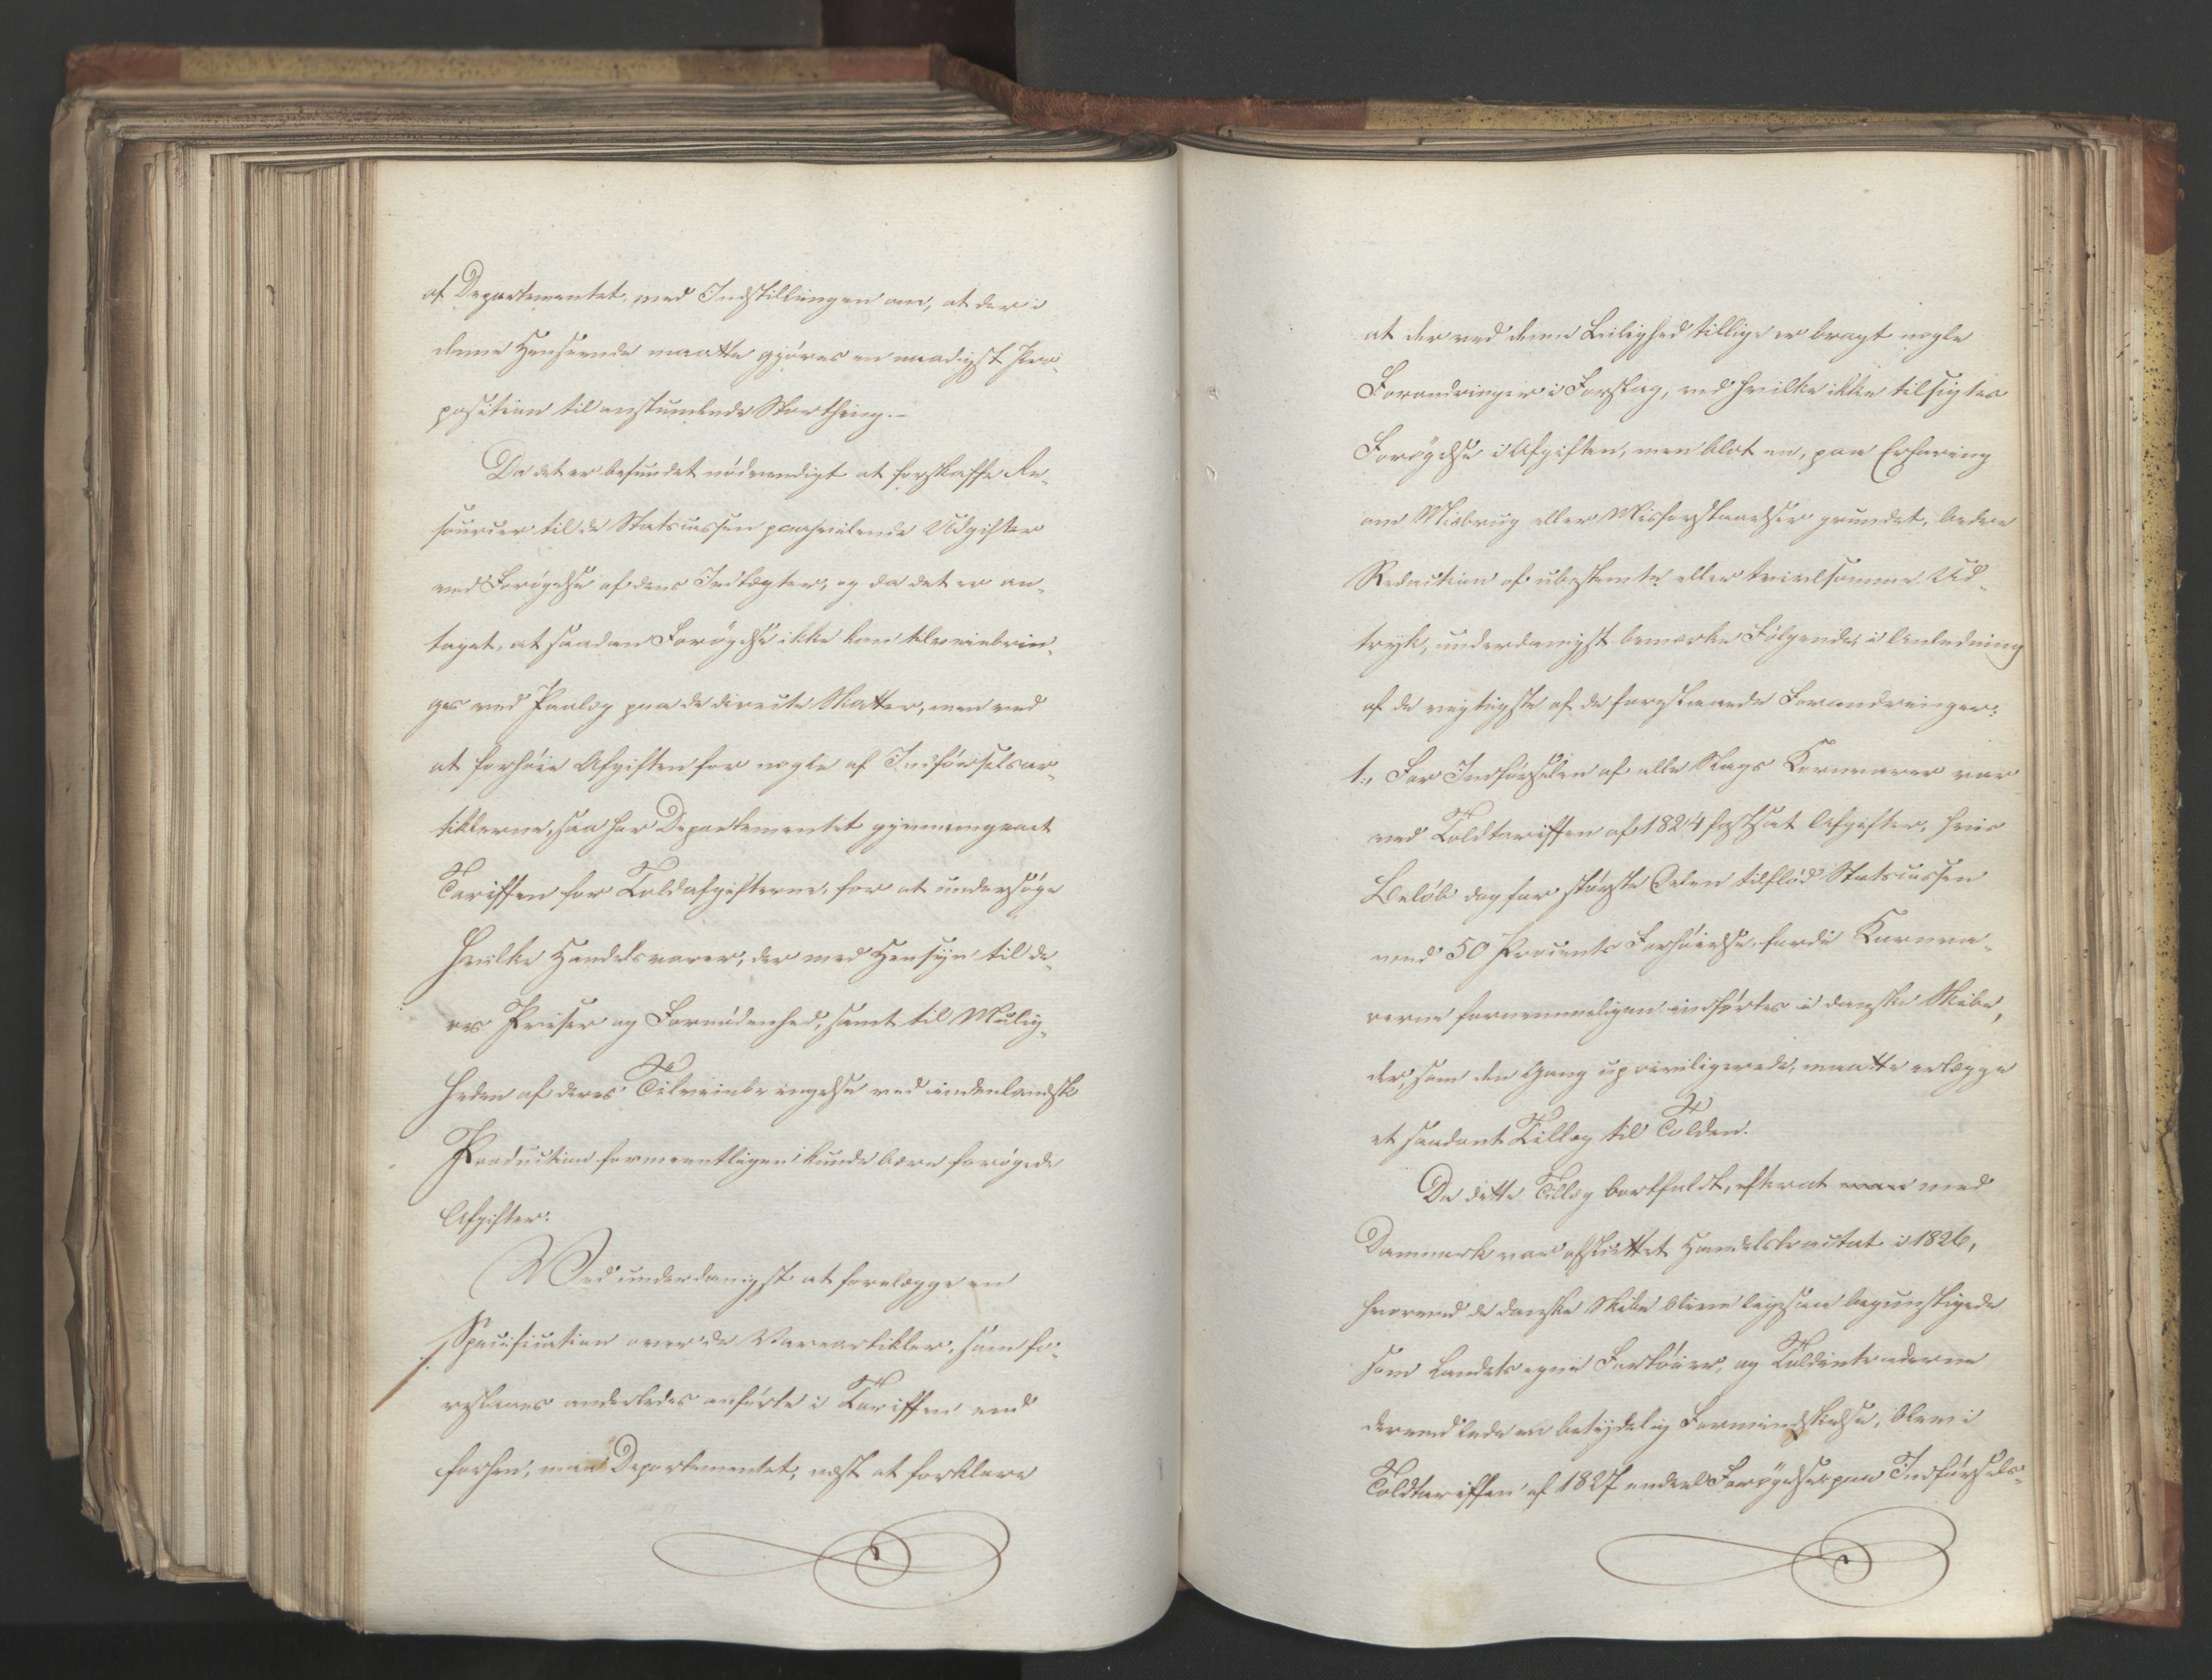 af Departementet, med Indstillingen om, at der i
denne Henseende maatte gjøres en naadigst Pro-
position til anstundende Storthing.-
Da det er befundet nødvendigt at forskaffe Re-
sourcer til de Statscassen paahvilende Udgifter
ved Forøgelse af dens Indtægter, og da det er an-
taget, at saadan Forøgelse ikke kan tilveiebrin-
ges ved Paalæg paa de directe Skatter, men ved
at forhøie Afgiften for nogle af Indførselsar-
tiklerne, saa har Departementet gjennemgaaet
Tariffen for Toldafgifterne, for at undersøge
hvilke Handelsvarer, der med Hensyn til de-
res Priser og Fornødenhed, samt til Mulig-
heden af deres Tilveiebringelse ved indenlandsk
Production formeentligen kunde bære forøgede
Afgifter:
Ved underdanigst at forelægge en
Specification over de Vareartikler, som fo-
reslaaes anderledes anførte i Tariffen end
forhen, maa Departementet, næst at forklare
at der ved denne Leilighed tillige er bragt nogle
Forandringer i Forslag, ved hvilke ikke tilsigtes
Forøgelse i Afgiften, men blot en, paa Erfaring
om Misbrug eller Misforstaaelser grundet, bedre
Redaction af ubestemte eller tvivlsomme Ud-
tryk, underdanigst bemærke Følgende, i Anledning
af de vigtigste af de foreslaaede Forandringer:
1., For Indførselen af alle Slags Kornvarer var
ved Toldtariffen af 1824 fastsat Afgifter, hvis
Beløb dog for største Delen tilflød Statscassen
med 50 Procents Forhøielse, fordi Kornva-
rerne fornemmeligen indførtes i danske Skibe,
der, som den Gang upriviligerede, maatte erlægge
et saadant Tillæg til Tolden.
Da dette Tillæg bortfaldt, efterat man med
Danmark var afsluttet Handelstractat i 1826,
hvorved de danske Skibe bleve ligesaa begunstigede
som Landets egne Fartøier, og Toldintraderne
derved lede en betydelig Formindskelse, blev i
Toldtariffen af 1827 endeel Forøgelse paa Indførsels-